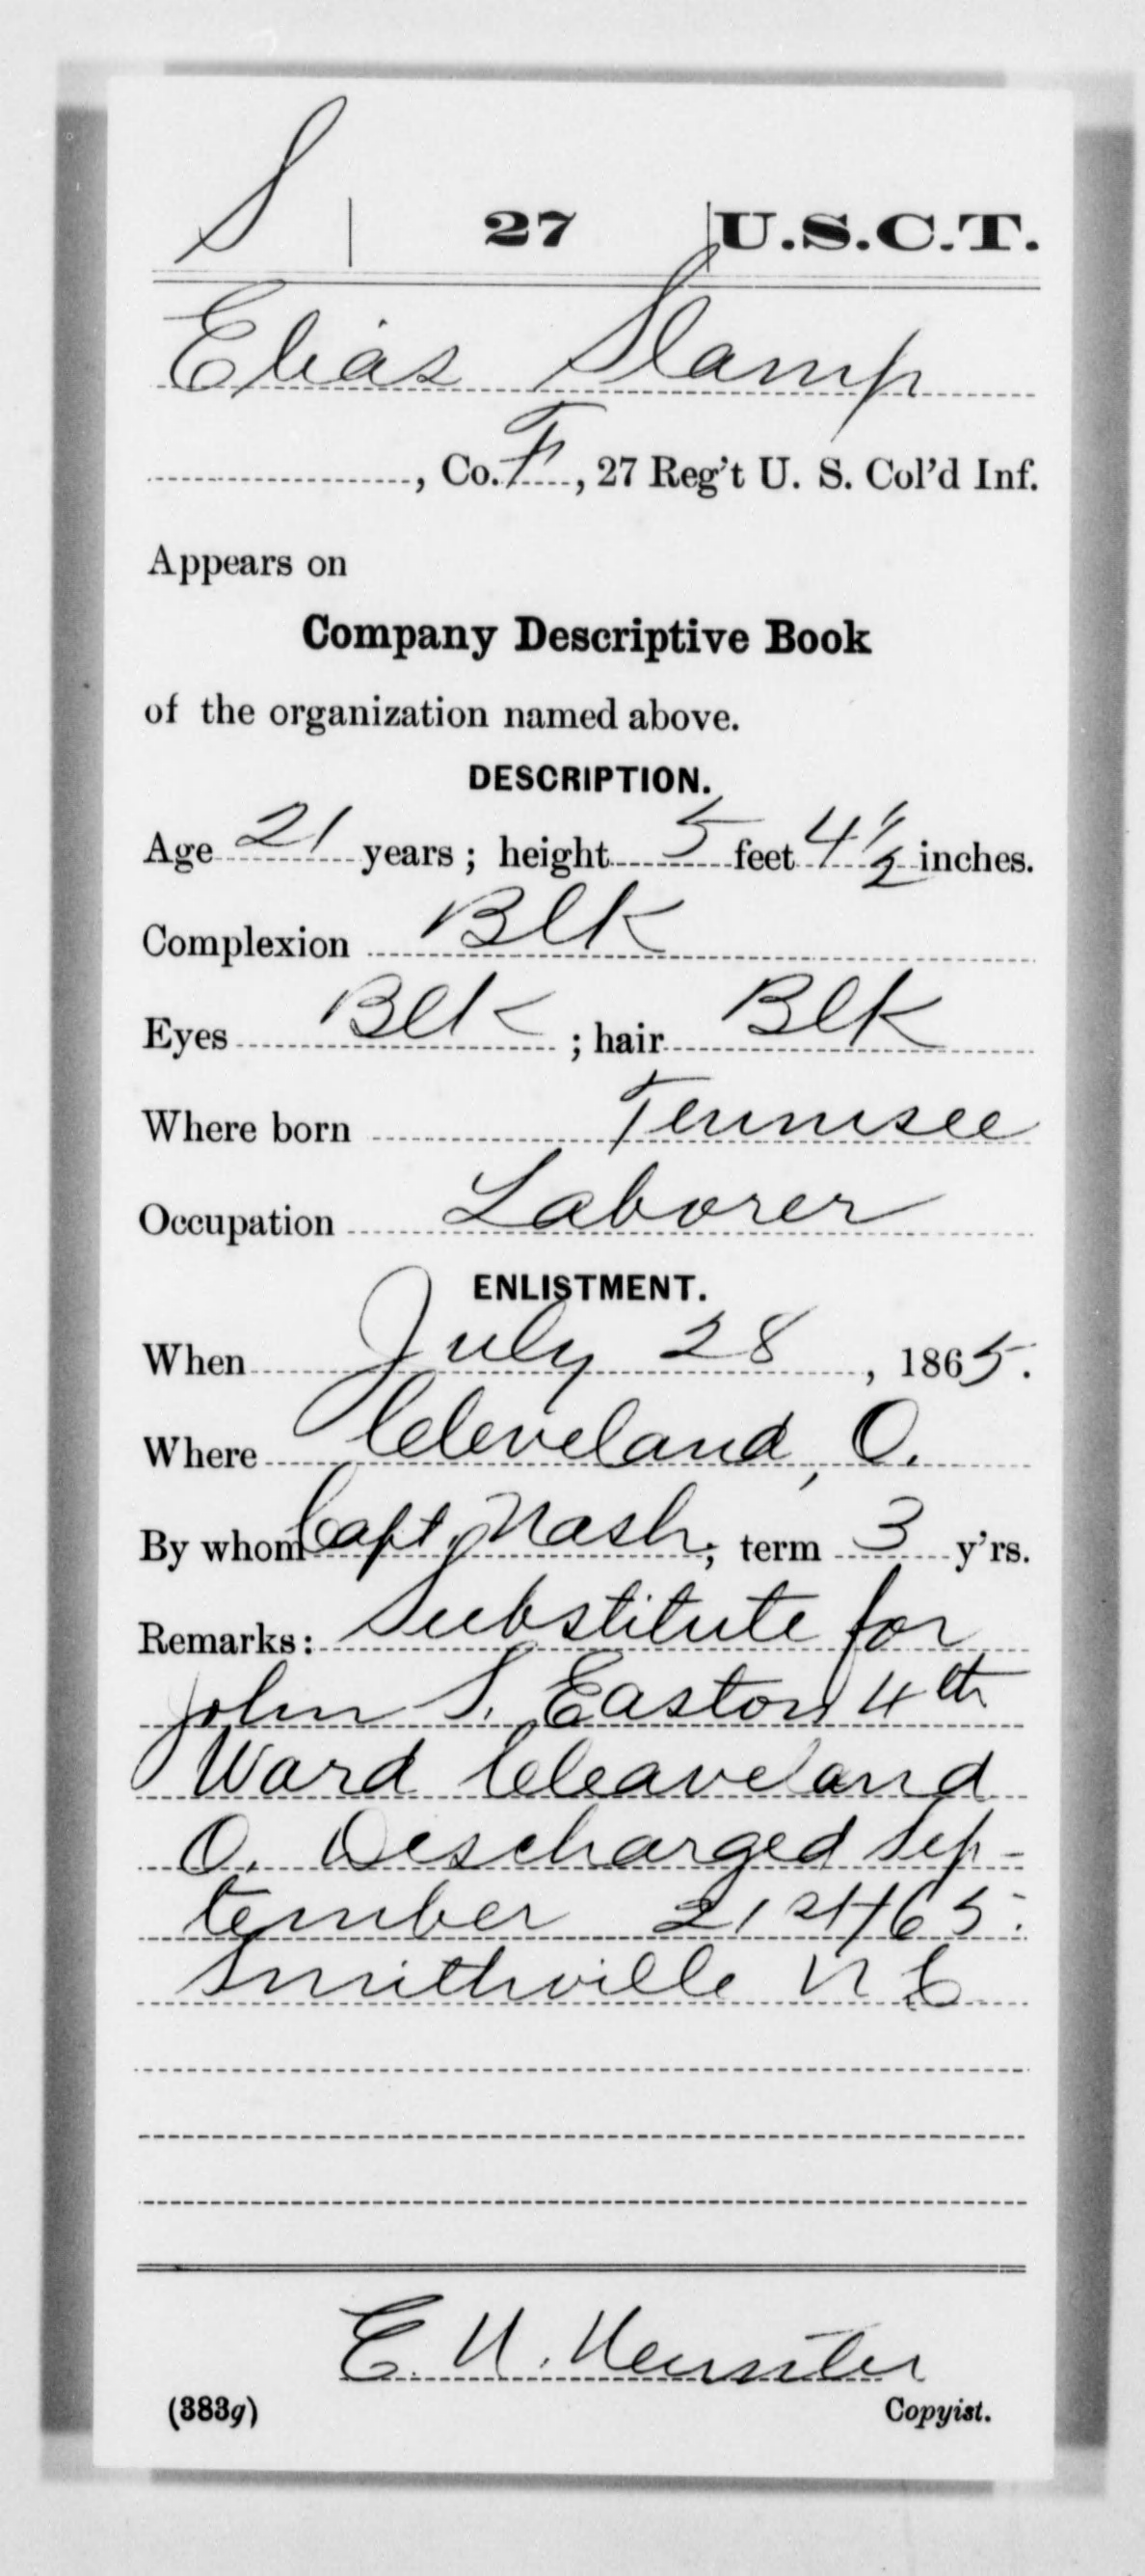 S | 27 | U.S.C.T.
Elias Stamp
, Co. F, 27 Reg't U. S. Col'd Inf.
Appears on
Company Descriptive Book
of the organization named above.
DESCRIPTION.
Age 21 years; height 5 feet 4 1/2 inches.
Complexion Blk
Eyes Blk; hair Blk
Where born Tennisee
Occupation Laborer
ENLISTMENT.
When July 28, 1865.
Where Cleveland, O.
By whom Capt. Nash; term 3 y'rs.
Remarks: Substitute for
John S. Easton 4th
Ward Cleaveland
O. Discharged Sep-
tember 21st/65.
Smithville N C
E. W.
(383g) Copyist.